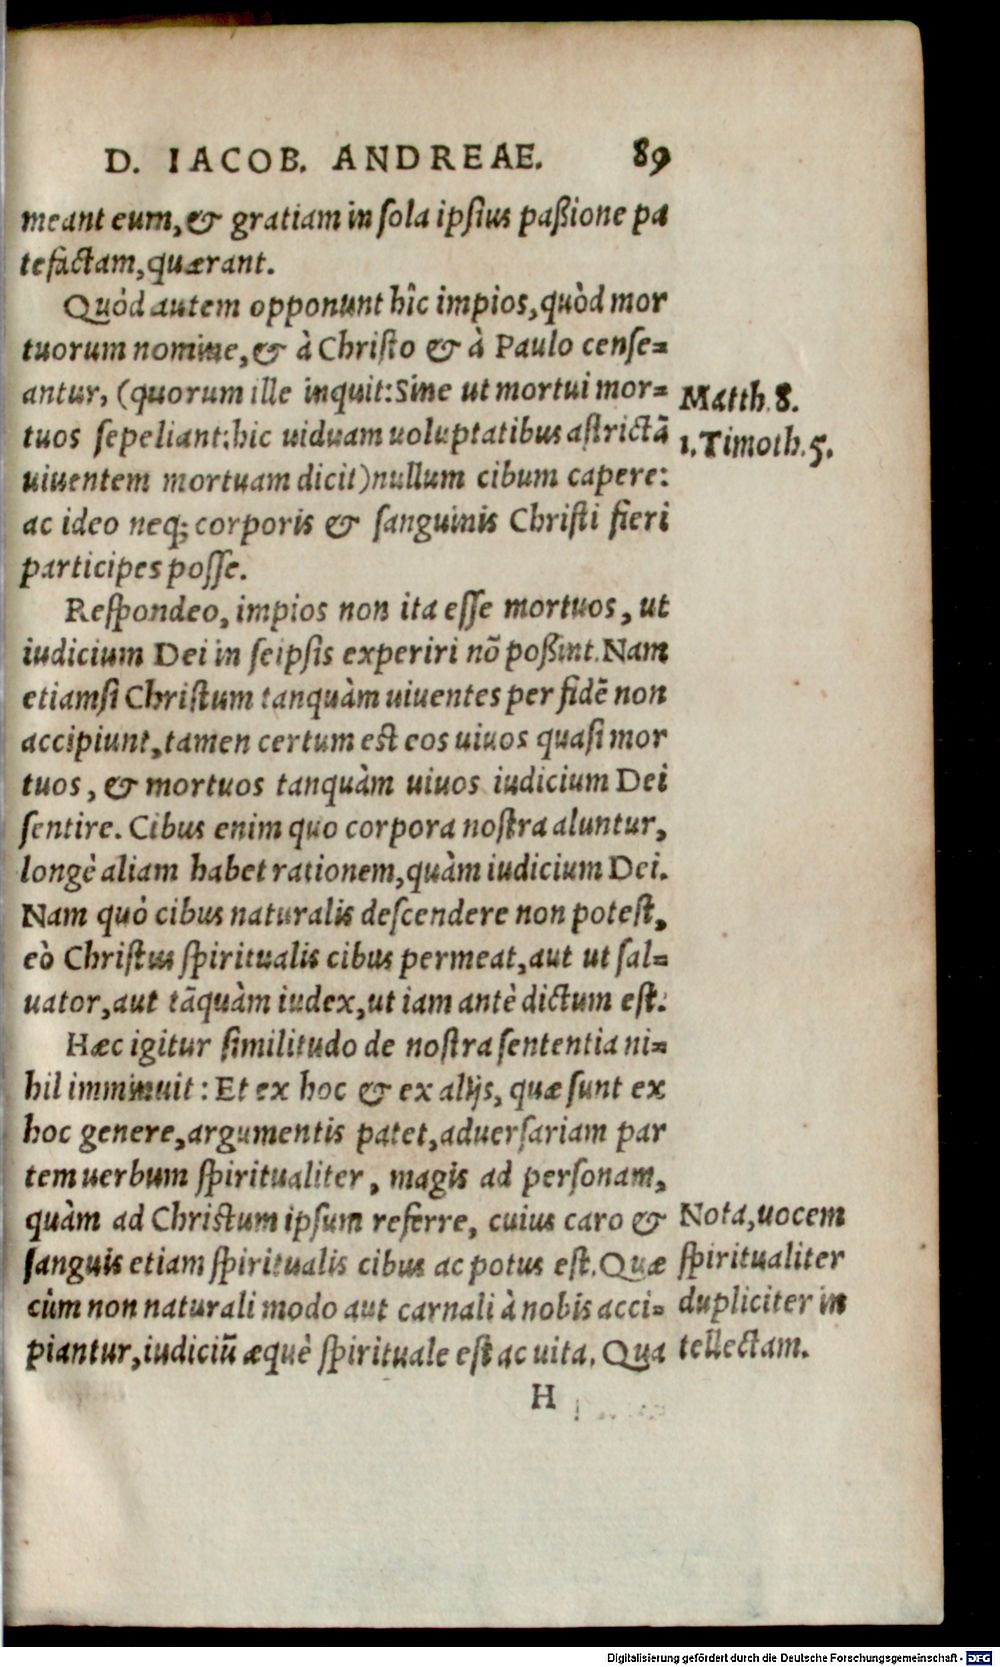 D. IACOB. ANDREAE. 89
meant eum, & gratiam in sola ipsius paßione pa
tefactam, quærant.
Quòd autem opponunt hîc impios, quòd mor
tuorum nomine, & à Christo & à Paulo cense=
antur, (quorum ille inquit: Sine ut mortui mor=
tuos sepeliant: hic uiduam uoluptatibus astrictã
uiuentem mortuam dicit) nullum cibum capere:
ac ideo neq; corporis & sanguinis Christi fieri
participes posse.
Matth. 8.
1. Timoth. 5.
Respondeo, impios non ita esse mortuos, ut
iudicium Dei in seipsis experiri nõ poßint. Nam
etiamsi Christum tanquàm uiuentes per fidẽ non
accipiunt, tamen certum est eos uiuos quasi mor
tuos, & mortuos tanquàm uiuos iudicium Dei
sentire. Cibus enim quo corpora nostra aluntur,
longè aliam habet rationem, quàm iudicium Dei.
Nam quò cibus naturalis descendere non potest,
eò Christus spiritualis cibus permeat, aut ut sal=
uator, aut tãquàm iudex, ut iam antè dictum est.
Hæc igitur similitudo de nostra sententia ni=
hil imminuit: Et ex hoc & ex alijs, quæ sunt ex
hoc genere, argumentis patet, aduersariam par
tem uerbum spiritualiter, magis ad personam,
quàm ad Christum ipsum referre, cuius caro &
sanguis etiam spiritualis cibus ac potus est. Quæ
cùm non naturali modo aut carnali à nobis acci=
piantur, iudiciũ æquè spirituale est ac uita. Qua
Nota, uocem
spiritualiter
dupliciter in
tellectam.
H
Digitalisierung gefördert durch die Deutsche Forschungsgemeinschaft - DFG